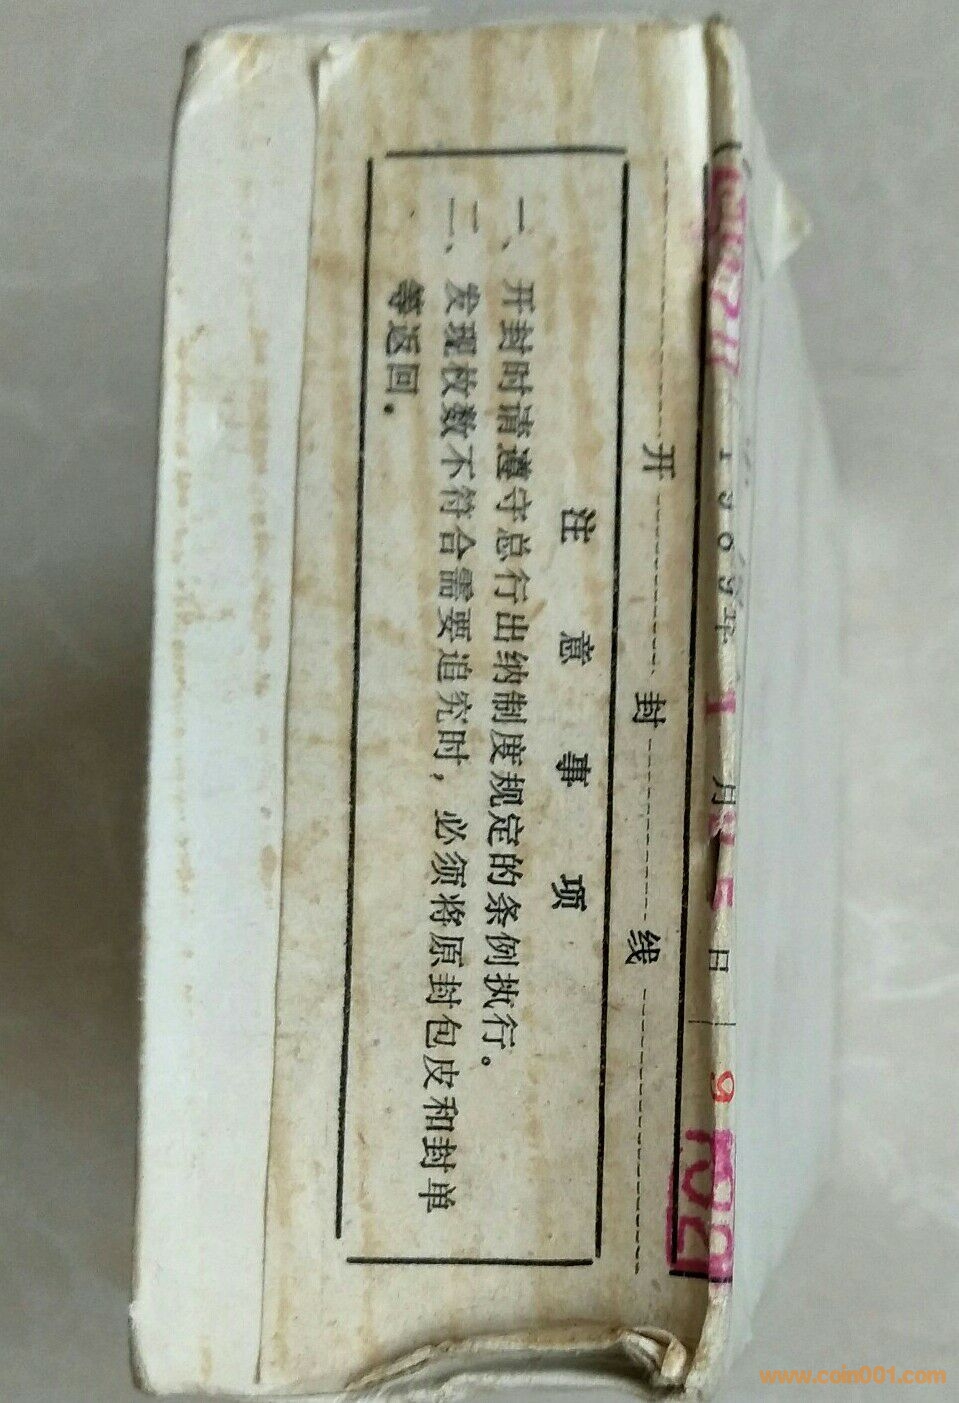 开封线
注意事项
一、开封时请遵守总行出纳制度规定的条例执行。
二、发现枚数不符合需要追究时，必须将原封包皮和封单
等返回。
www.coin001.com